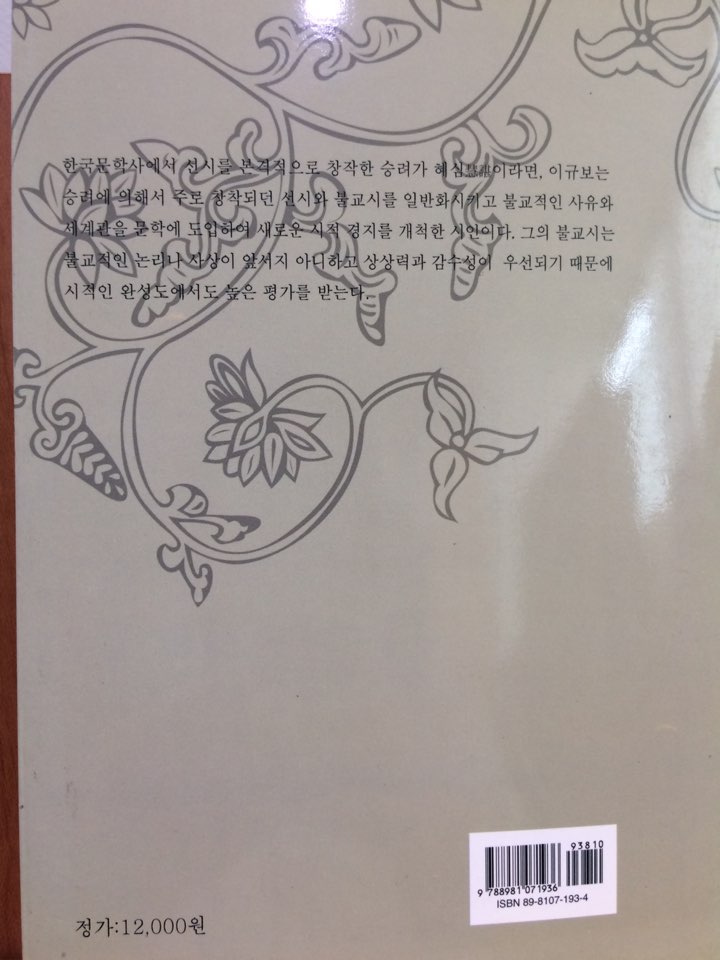 한국문학사에서 선시를 본격적으로 창작한 승려가 혜심慧諶이라면, 이규보는
승려에 의해서 주로 창작되던 선시와 불교시를 일반화시키고 불교적인 사유와
세계관을 문학에 도입하여 새로운 시적 경지를 개척한 시인이다. 그의 불교시는
불교적인 논리나 사상이 앞서지 아니하고 상상력과 감수성이 우선되기 때문에
시적인 완성도에서도 높은 평가를 받는다.
93810
9 788981 071936
ISBN 89-8107-193-4
정가:12,000원